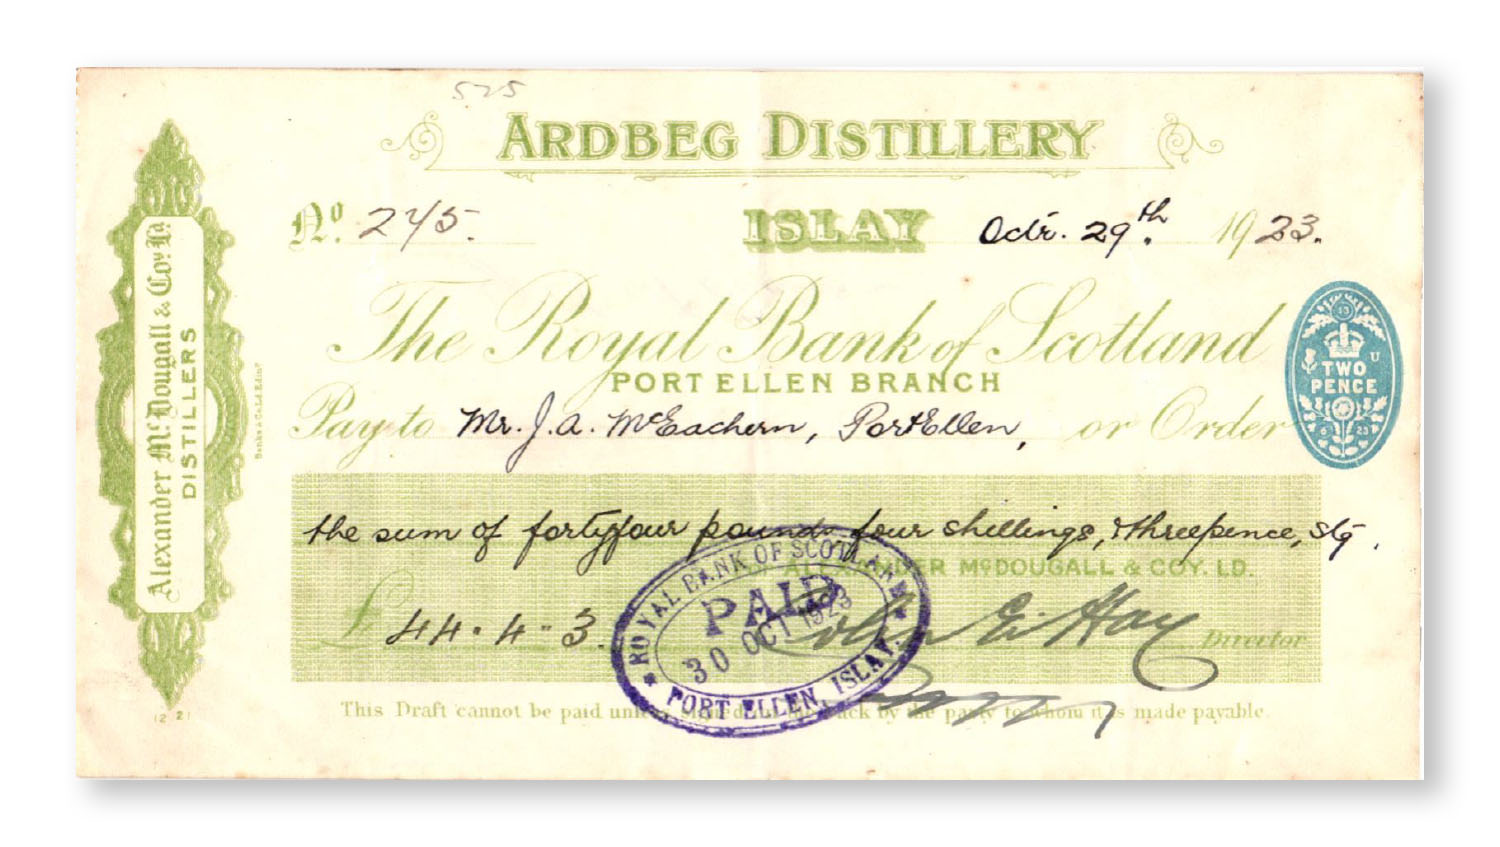 525
ARDBEG DISTILLERY
No. 245.
ISLAY Octr. 29th. 1923.
The Royal Bank of Scotland
PORT ELLEN BRANCH
Pay to Mr. J. A. McEachern, Port Ellen, or Order
the sum of fortyfour pounds four shillings, & threepence, stg.
ALEXANDER McDOUGALL & COY. LD.
£ 44 . 4 - 3.
Colin E. Hay Director
This Draft cannot be paid unless by the party to whom it is made payable.
Alexander McDougall & Coy. Ld.
DISTILLERS
Banks & Co. Ld. Edinr.
12 21
TWO
PENCE
ROYAL BANK OF SCOTLAND
PAID
30 OCT 1923
PORT ELLEN, ISLAY.